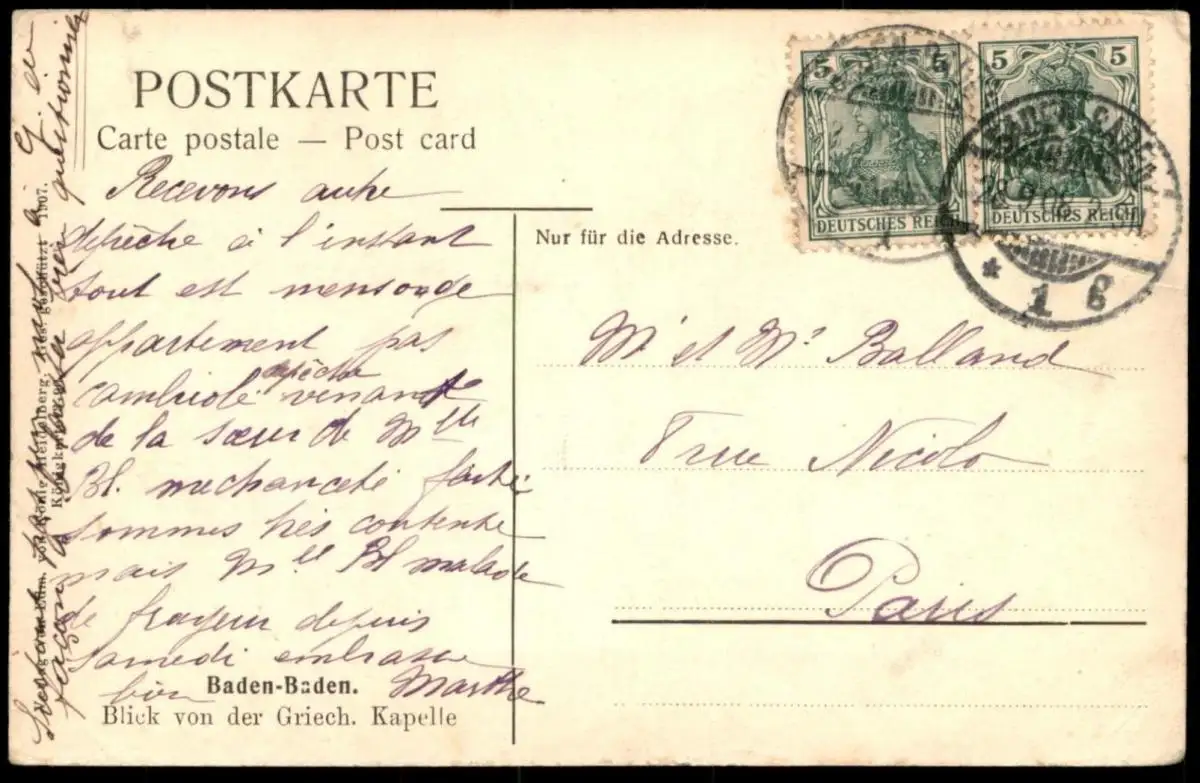 POSTKARTE
Carte postale — Post card
Nur für die Adresse.
5 5
DEUTSCHES REICH
5 5
DEUTSCHES REICH
BADEN-BADEN
28.9.06
* 1 g
Recevons autre
dépêche à l'instant
tout est mensonge
appartement pas
cambriolé dépêche venant
de la sœur de Mlle
Bl. mechanceté
sommes très contente
mais Mlle Bl malade
de frayeur depuis
samedi embrasse
bien Marthe
Mr et Me Balland
7 rue Nicolo
Paris
Baden-Baden.
Blick von der Griech. Kapelle
von König, Heidelberg. 1907.
questionner